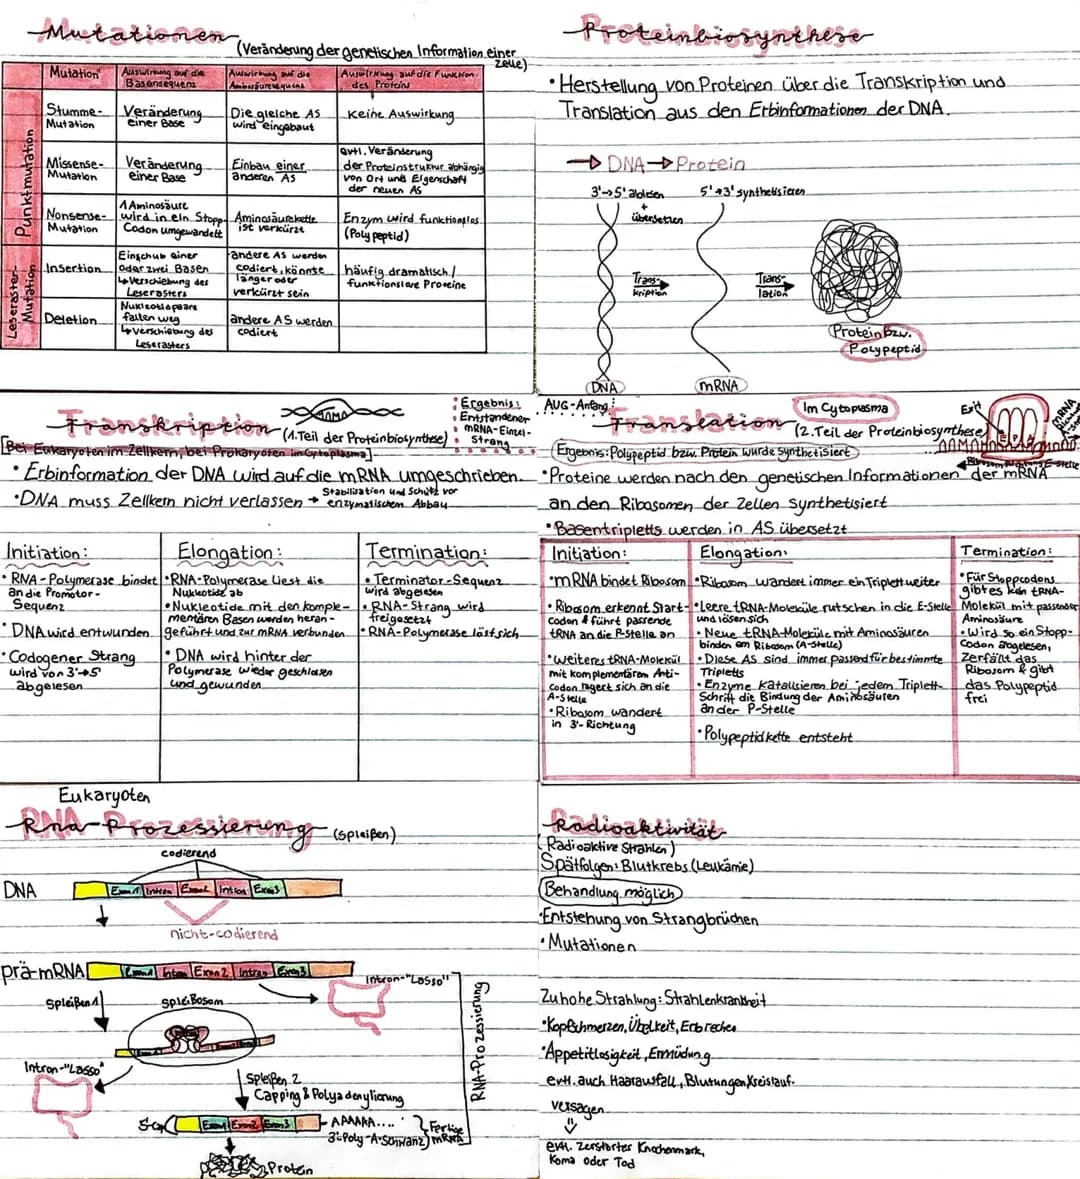 Mutationen
(Veränderung der genetischen Information einer Zelle)
Mutation
Auswirkung auf die Basensequenz
Auswirkung auf die Aminosäuresequenz
Auswirkung auf die Funktion des Proteins
Punktmutation
Stumme-Mutation
Veränderung einer Base
Die gleiche AS wird eingebaut
Keine Auswirkung
Missense-Mutation
Veränderung einer Base
Einbau einer anderen AS
evtl. Veränderung der Proteinstruktur abhängig von Ort und Eigenschaft der neuen AS
Nonsense-Mutation
1 Aminosäure wird in ein Stopp-Codon umgewandelt
Aminosäurekette ist verkürzt
Enzym wird funktionslos (Polypeptid)
Leseraster-Mutation
Insertion
Einschub einer oder zwei Basen
↳Verschiebung des Leserasters
andere AS werden codiert, könnte länger oder verkürzt sein
häufig dramatisch / funktionslare Proteine
Deletion
Nukleotidpaare fallen weg
↳Verschiebung des Leserasters
andere AS werden codiert
Proteinbiosynthese
• Herstellung von Proteinen über die Transkription und
Translation aus den Erbinformationen der DNA.
→ DNA → Protein
3'→5' ablesen
+
übersetzen
5'→3' synthetisieren
Trans-
kription
Trans-
lation
Protein bzw.
Polypeptid
DNA
mRNA
Transkription
(1. Teil der Proteinbiosynthese)
Ergebnis:
Entstandener
mRNA-Einzel-
Strang
[Bei Eukaryoten im Zellkern, bei Prokaryoten im Cytoplasma]
• Erbinformation der DNA wird auf die mRNA umgeschrieben.
• DNA muss Zellkern nicht verlassen → Stabilisation und Schutz vor
enzymatischem Abbau
Initiation:
• RNA-Polymerase bindet
an die Promotor-
Sequenz
• DNA wird entwunden
• Codogener Strang
wird von 3'→5'
abgelesen
Elongation:
• RNA-Polymerase liest die
Nukleotide ab
• Nukleotide mit den komple-
mentären Basen werden heran-
geführt und zur mRNA verbunden
• DNA wird hinter der
Polymerase wieder geschlossen
und gewunden
Termination:
• Terminator-Sequenz
wird abgelesen
• RNA-Strang wird
freigesetzt
• RNA-Polymerase löst sich
AUG-Anfang
Translation
Im Cytoplasma
(2. Teil der Proteinbiosynthese)
Exit
E P A
E-Stelle
Ergebnis: Polypeptid bzw. Protein wurde synthetisiert
• Proteine werden nach den genetischen Informationen der mRNA
an den Ribosomen der Zellen synthetisiert
• Basentripletts werden in AS übersetzt
Initiation:
• mRNA bindet Ribosom
• Ribosom erkennt Start-
codon & führt passende
tRNA an die P-Stelle an
• Weiteres tRNA-Molekül
mit komplementärem Anti-
codon lagert sich an die
A-Stelle
• Ribosom wandert
in 3'-Richtung
Elongation:
• Ribosom wandert immer ein Triplett weiter
• leere tRNA-Moleküle rutschen in die E-Stelle
und lösen sich
• Neue tRNA-Moleküle mit Aminosäuren
binden am Ribosom (A-Stelle)
• Diese AS sind immer passend für bestimmte
Tripletts
• Enzyme katalisieren bei jedem Triplett-
Schritt die Bindung der Aminosäuren
an der P-Stelle
• Polypeptidkette entsteht
Termination:
• Für Stoppcodons
gibt es kein tRNA-
Molekül mit passender
Aminosäure
• Wird so ein Stopp-
Codon abgelesen,
zerfällt das
Ribosom & gibt
das Polypeptid
frei
Eukaryoten
Rna-Prozessierung (spleißen)
codierend
DNA
Exon 1 Intron Exon 2 Intron Exon 3
nicht-codierend
prä-mRNA
Exon 1 Intron Exon 2 Intron Exon 3
Intron-"Lasso"
Spleißen 1
Spleißosom
Intron-"Lasso"
Spleißen 2
Capping & Polyadenylierung
RNA-Prozessierung
Exon 1 Exon 2 Exon 3
AAAAAA....
3'-Poly-A-Schwanz
Fertige
mRNA
Protein
Radioaktivität
(Radioaktive Strahlen)
Spätfolgen: Blutkrebs (Leukämie)
Behandlung möglich
• Entstehung von Strangbrüchen
• Mutationen
Zu hohe Strahlung: Strahlenkrankheit
• Kopfschmerzen, Übelkeit, Erbrechen
• Appetitlosigkeit, Ermüdung
evtl. auch Haarausfall, Blutungen Kreislauf-
versagen
⇓
evtl. zerstörter Knochenmark,
Koma oder Tod